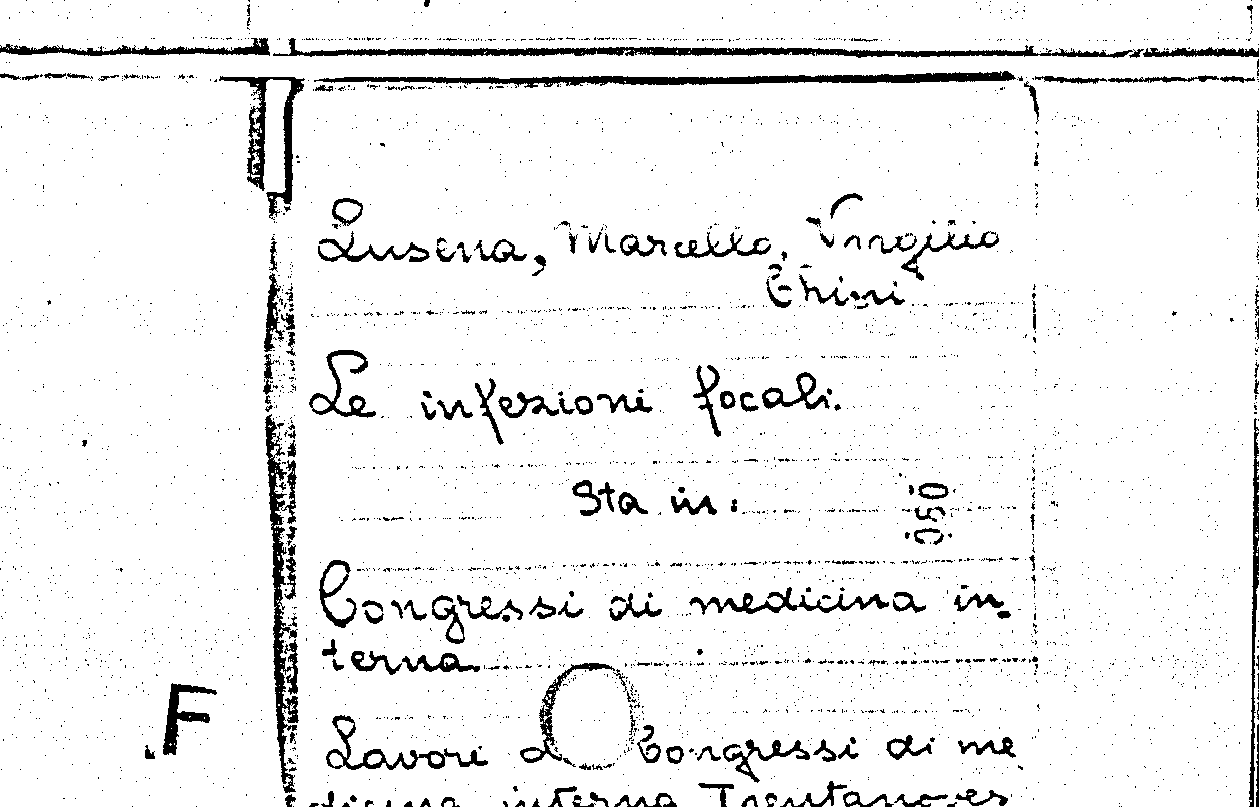 Lusena, Marcello, Virgilio
Chini
Le infezioni focali.
Sta in:
050
Congressi di medicina in-
terna.
F
Lavori d Congressi di me
dicina interna